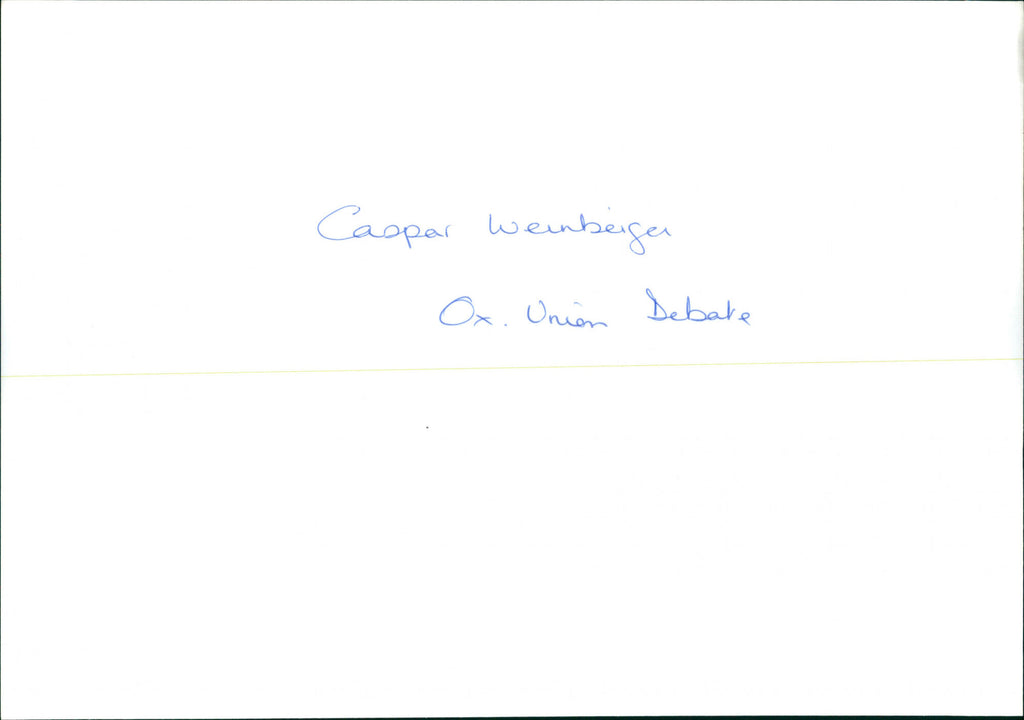 Caspar Weinberger
Ox. Union Debate